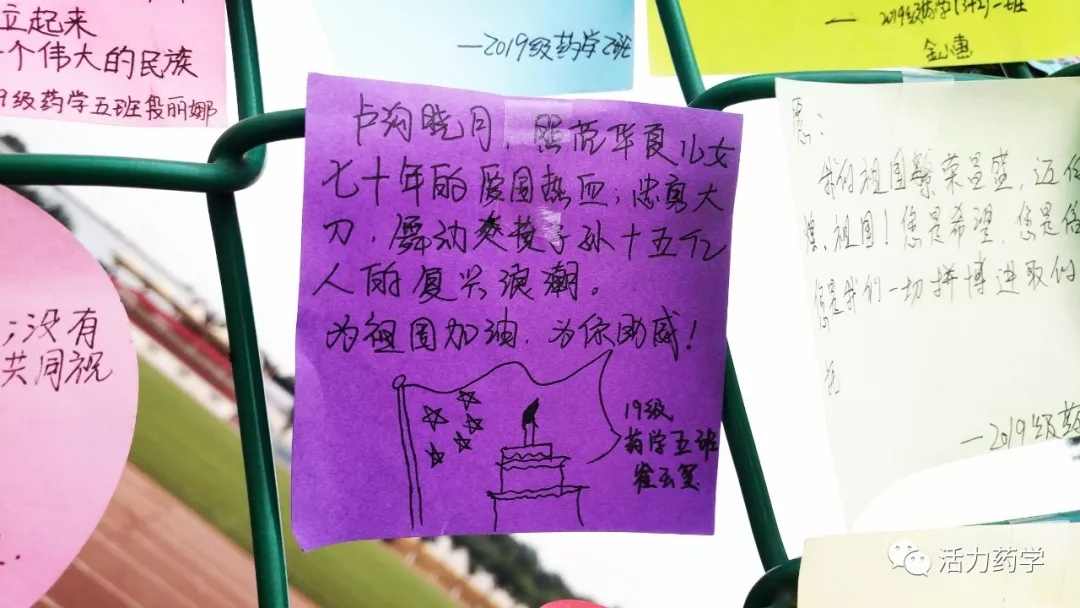 立起来
一个伟大的民族
9级药学五班段丽娜
—2019级药学2班
— 2019级药学(3+2)一班
卢沟晓月,照亮华夏儿女
七十年的爱国热血;忠勇大
刀,舞动炎黄子孙十五亿
人的复兴浪潮。
为祖国加油,为你助威!
19级
药学五班
愿:
我的祖国繁荣昌盛,迈
祖国!您是希望,您是信
您是我们一切拼搏进取的
—2019级药
;没有
共同祝
活力药学